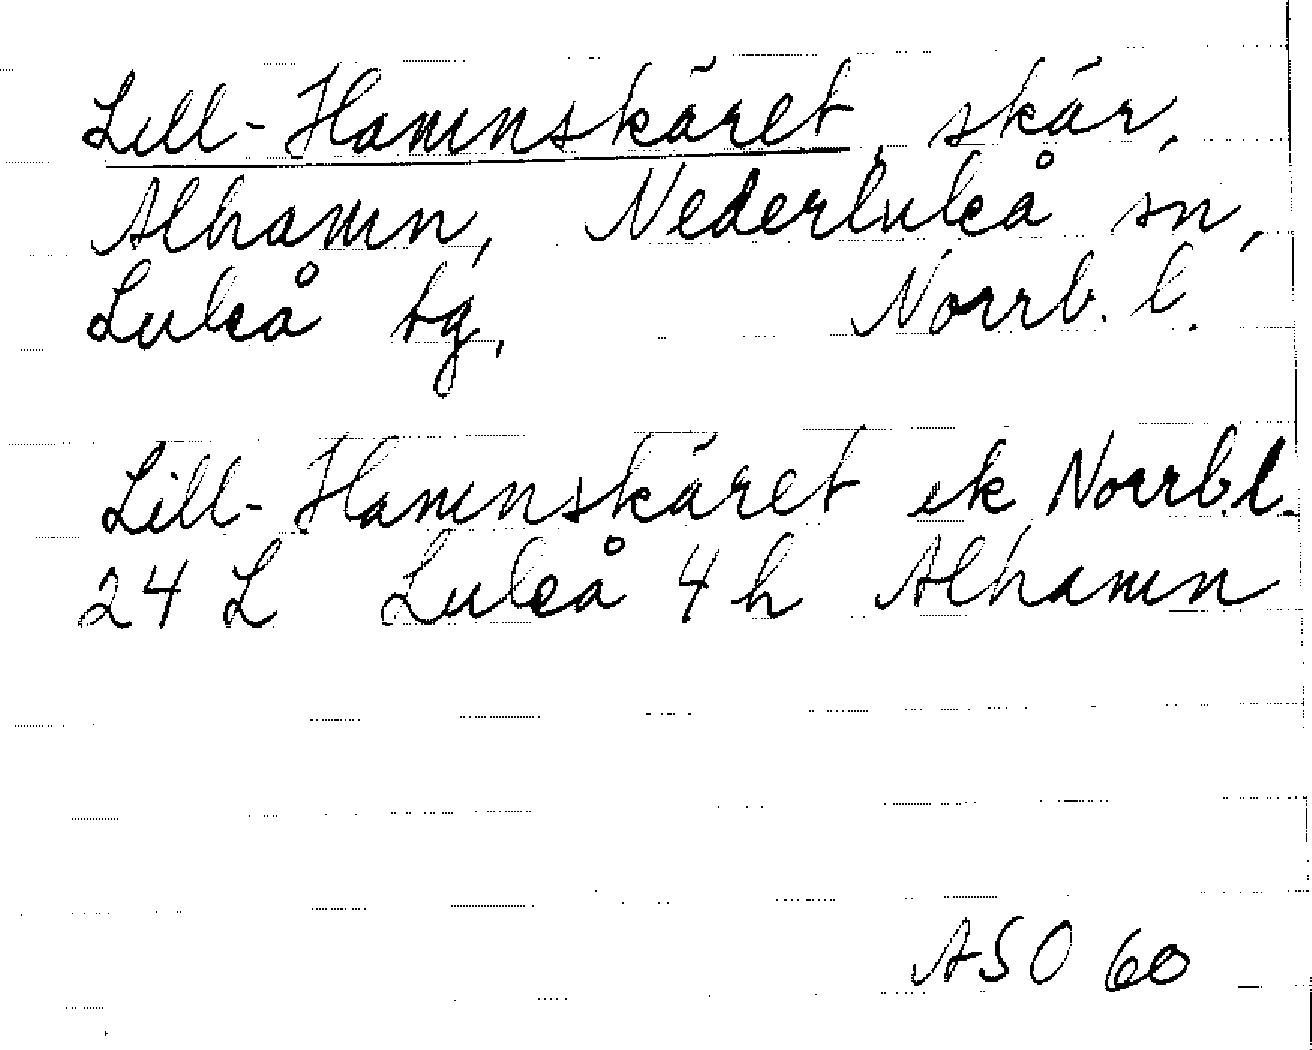 Lill-Hamnskäret, skär,
Alhamn, Nederluleå sn,
Luleå tg, Norrb. l.
Lill-Hamnskäret ek Norrb.l.
24 L Luleå 4 h Alhamn
ASO 60